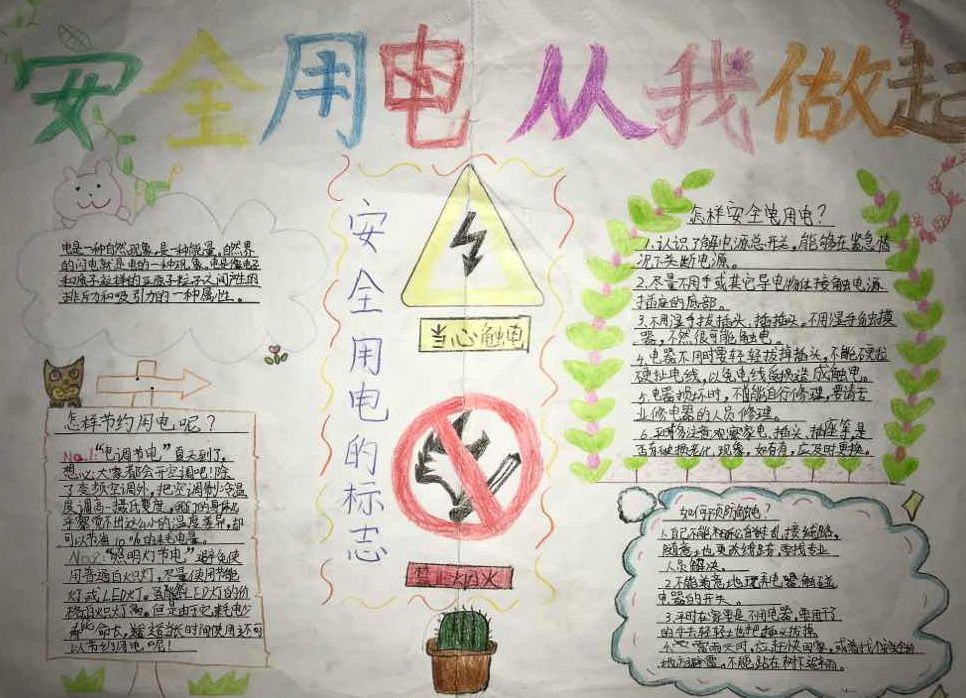 安全用电 从我做起
电是一种自然现象,是一种能量,自然界
的闪电就是电的一种现象。电是像电子
和质子这样的亚原子粒子之间产生的
排斥力和吸引力的一种属性。
怎样节约用电呢?
No.1"空调节电"夏天到了,
想必大家都会开空调吧!除
了变频空调外,把空调制冷温
度调高一摄氏度,我们的身体几
乎察觉不出这么小的温度差异,却
可以节省10%的耗电量。
No.2"照明灯节电"避免使
用普通白炽灯,尽量使用节能
灯或LED灯。虽然LED灯的价
格比白炽灯高,但是由于它耗电少
寿命长,
可
以节约用电呢!
安全用电的标志
当心触电
禁止烟火
怎样安全使用电?
1.认识了解电源总开关,能够在紧急情
况下关断电源。
2.尽量不用手或其它导电物体接触电源
插座的底部。
3.不用湿手拔插头、插插头,不用湿手触摸
器,不然很可能触电。
4.电器不用时要轻轻拔掉插头,不能硬拉
硬扯电线,以免电线破损造成触电。
5.电器损坏时,不能自行修理,要请专
业修电器的人员修理。
6.平时多注意观察家电、插头、插座等是
否有破损老化现象,如有,应及时更换。
如何预防触电?
1.自己不能私自乱接线路,
随意 更改线路,要找专业
人员解决。
2.不能随意地玩弄电器触碰
电器的开关。
3.平时在家里是不用电器,要用干
的手去轻轻地把插头拔掉
4. 雷雨天时,应赶快回家,或者找个安全的
地方避雷,不能站在树下避雨。